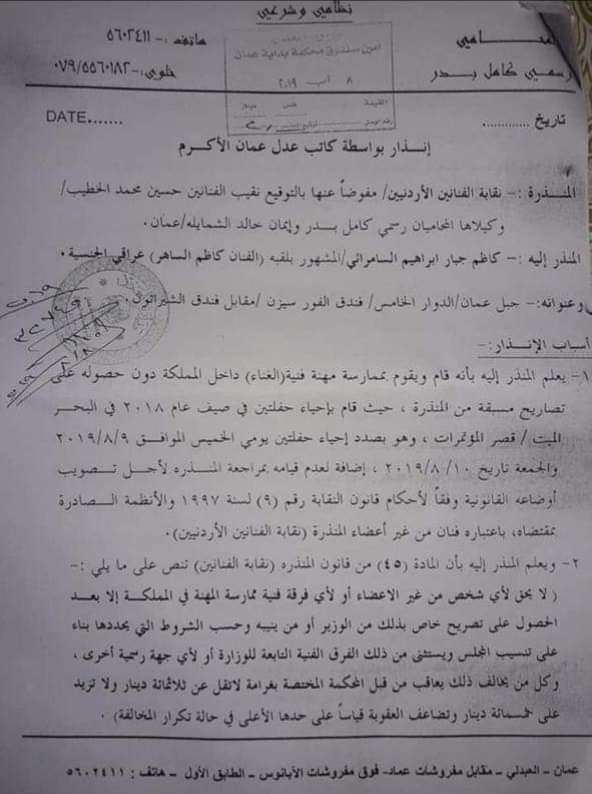 نظاميين وشرعيين
المحامي
هاتف :- ٥٦٠٢٤١١
رسمي كامل بدر
خلوي:- ٠٧٩/٥٥٦٠١٨٢
امين صندوق محكمة بداية عمان
٨ آب ٢٠١٩
القيمة فلس دينار
تاريخ ............
DATE.......
إنذار بواسطة كاتب عدل عمان الأكرم
المنذرة :- نقابة الفنانين الأردنيين/ مفوضاً عنها بالتوقيع نقيب الفنانين حسين محمد الخطيب/
وكيلاها المحاميان رسمي كامل بدر وإيمان خالد الشمايله/عمان.
المنذر إليه :- كاظم جبار ابراهيم السامرائي/المشهور بلقبه (الفنان كاظم الساهر) عراقي الجنسية.
وعنوانه:- جبل عمان/الدوار الخامس/ فندق الفور سيزن /مقابل فندق الشيراتون.
أسباب الإنذار:-
١- يعلم المنذر إليه بأنه قام ويقوم بممارسة مهنة فنية(الغناء) داخل المملكة دون حصوله على
تصاريح مسبقة من المنذرة ، حيث قام بإحياء حفلتين في صيف عام ٢٠١٨ في البحر
الميت / قصر المؤتمرات ، وهو بصدد إحياء حفلتين يومي الخميس الموافق ٢٠١٩/٨/٩
والجمعة تاريخ ٢٠١٩/٨/١٠ ، إضافة لعدم قيامه بمراجعة المنذره لأجل تصويب
أوضاعه القانونية وفقاً لأحكام قانون النقابة رقم (٩) لسنة ١٩٩٧ والأنظمة الصادرة
بمقتضاه، باعتباره فنان من غير أعضاء المنذرة (نقابة الفنانين الأردنيين).
٢- ويعلم المنذر إليه بأن المادة (٤٥) من قانون المنذره (نقابة الفنانين) تنص على ما يلي :-
( لا يحق لأي شخص من غير الاعضاء أو لأي فرقة فنية ممارسة المهنة في المملكة إلا بعد
الحصول على تصريح خاص بذلك من الوزير أو من ينيبه وحسب الشروط التي يحددها بناء
على تنسيب المجلس ويستثنى من ذلك الفرق الفنية التابعة للوزارة أو لأي جهة رسمية أخرى ،
وكل من يخالف ذلك يعاقب من قبل المحكمة المختصة بغرامة لاتقل عن ثلاثمائة دينار ولا تزيد
على خمسمائة دينار وتضاعف العقوبة قياساً على حدها الأعلى في حالة تكرار المخالفة) .
عمان - العبدلي - مقابل مفروشات عماد- فوق مفروشات الآبانوس - الطابق الأول - هاتف : ٥٦٠٢٤١١